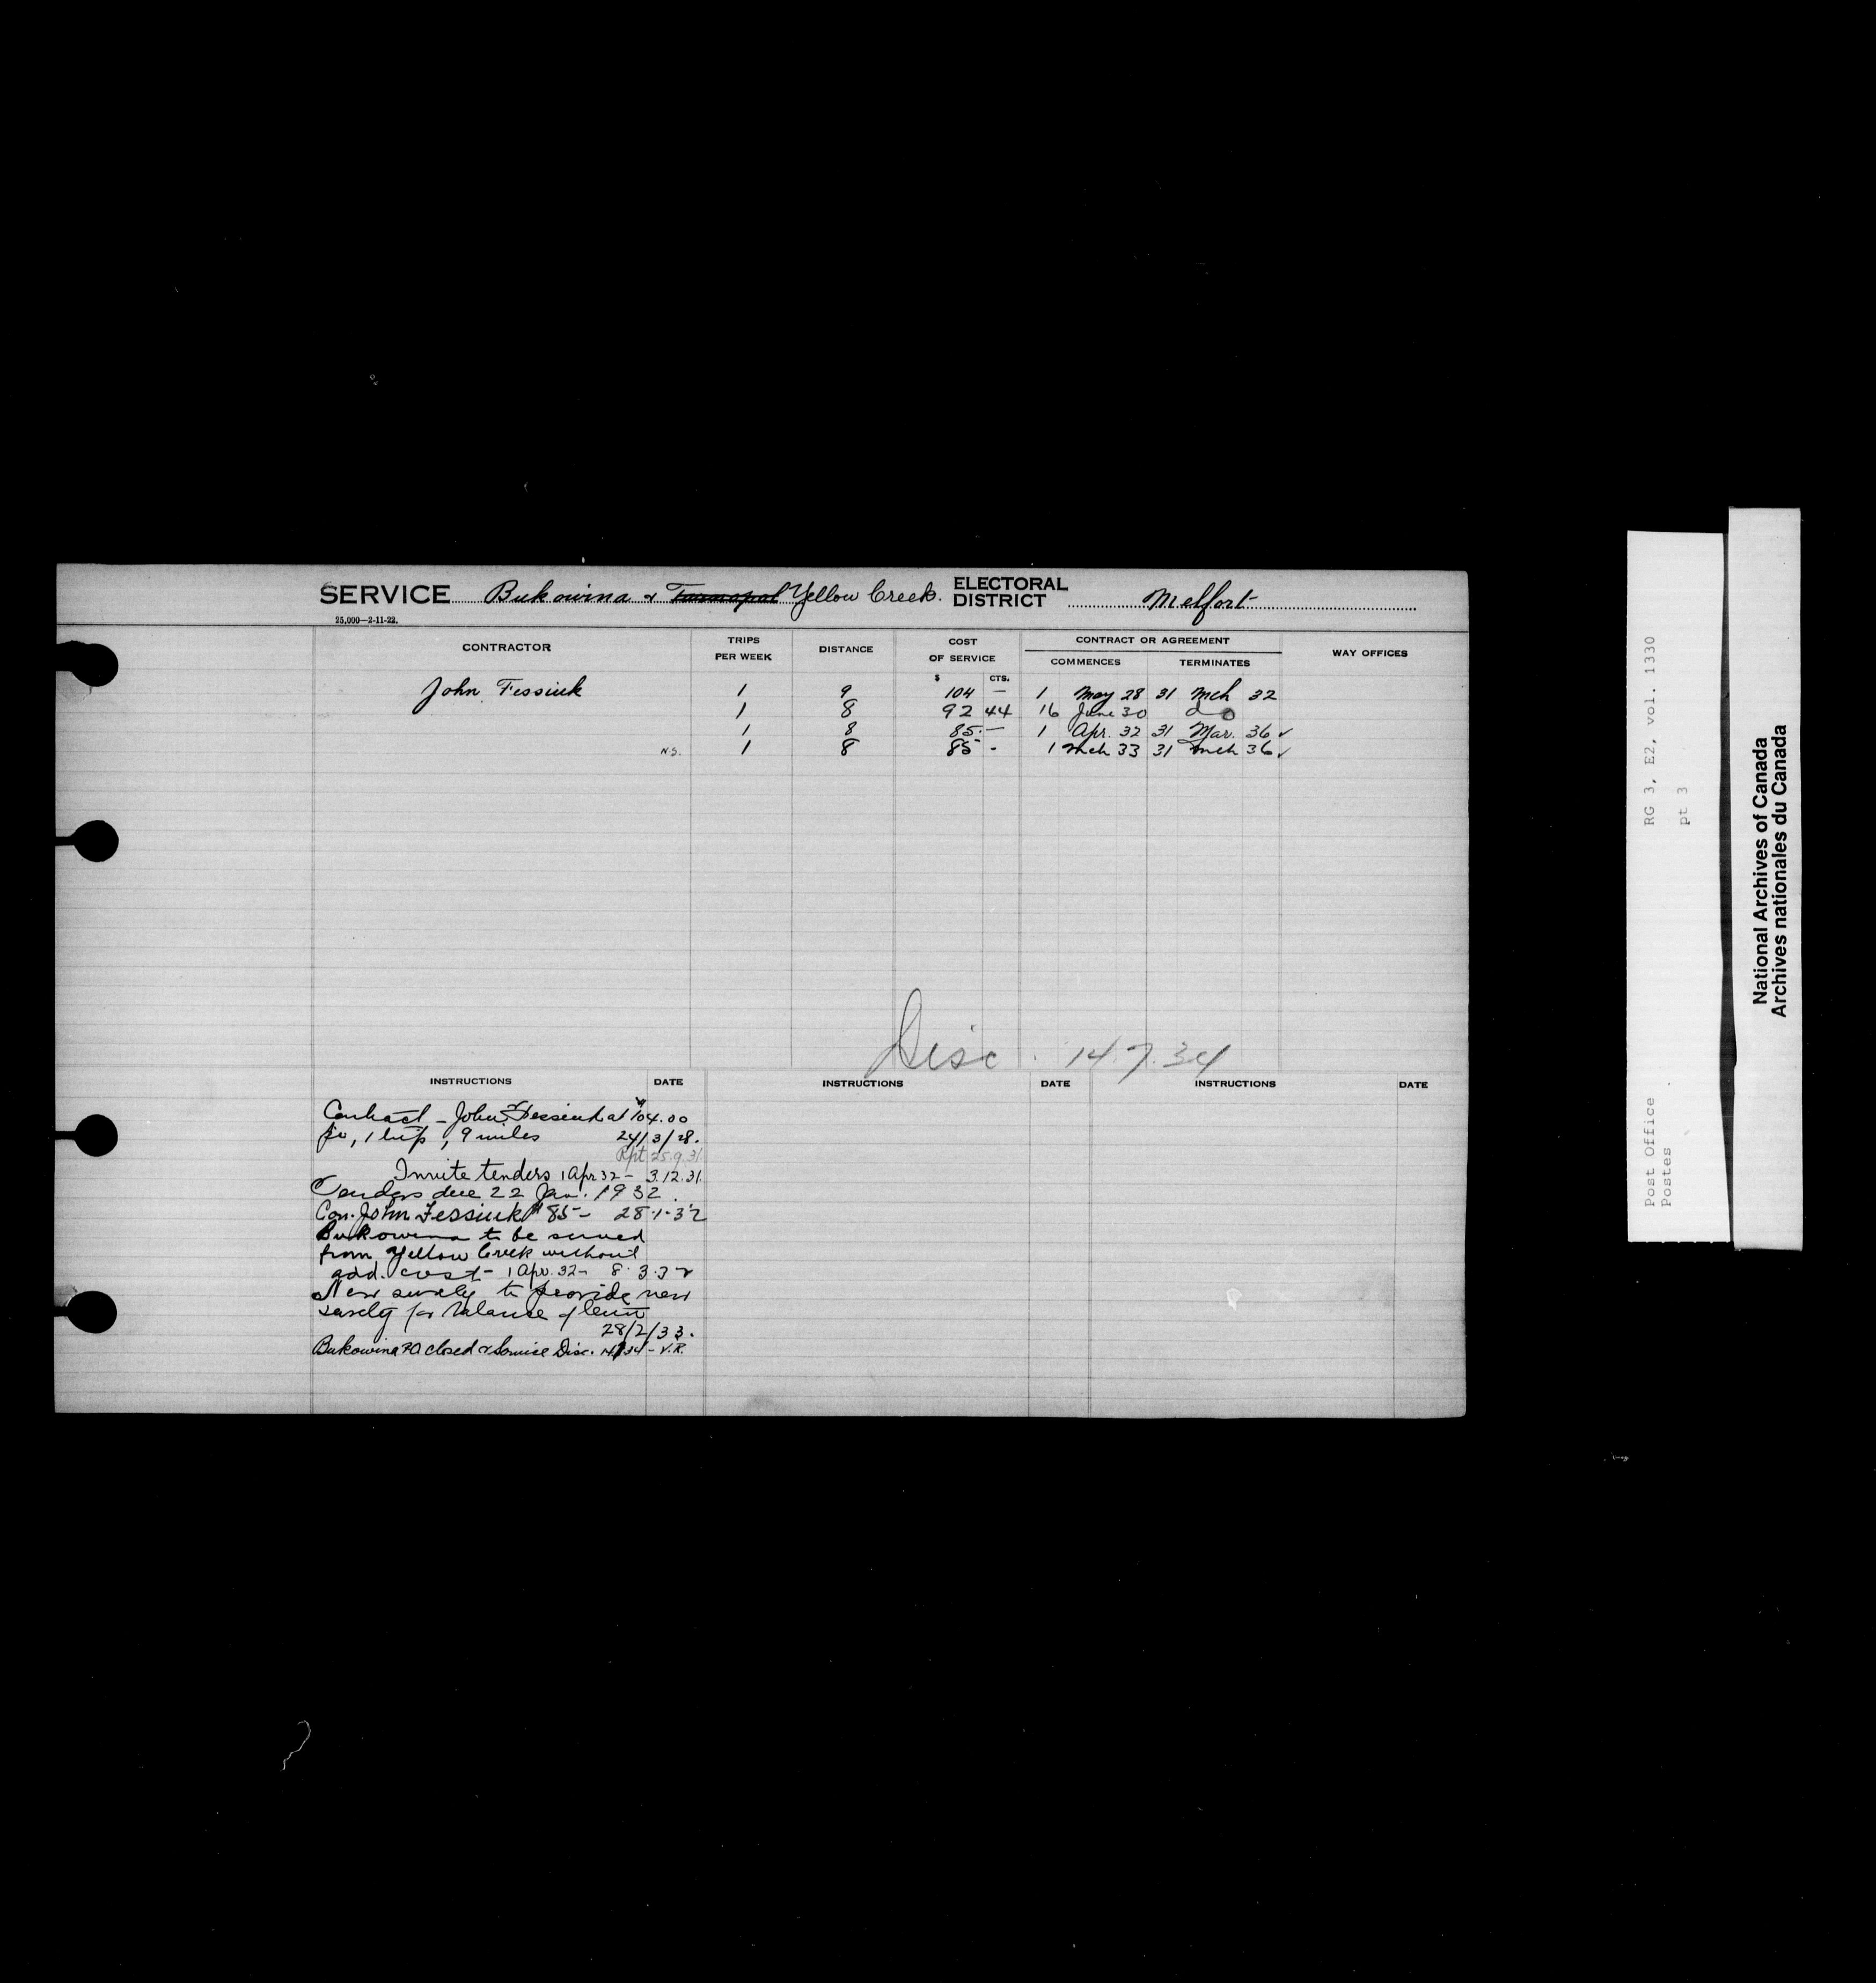 SERVICE Bukowina & Tarnopol Yellow Creek. ELECTORAL DISTRICT Melfort
25,000—2-11-22.
CONTRACTOR TRIPS PER WEEK DISTANCE COST OF SERVICE CONTRACT OR AGREEMENT WAY OFFICES
COMMENCES TERMINATES
$ CTS.
John Fessiuk 1 9 104 — 1 May 28 31 Mch 32
1 8 92 44 16 June 30 do
1 8 85 — 1 Apr. 32 31 Mar. 36 ✓
N.S. 1 8 85 - 1 Mch 33 31 Mch 36 ✓
Disc. 14.7.34
INSTRUCTIONS DATE INSTRUCTIONS DATE INSTRUCTIONS DATE
Contract - John Fessiuk at $104.00
, 1 trip, 9 miles 24/3/28.
Rpt 25.9.31
Invite tenders 1 Apr 32 - 3.12.31
Tenders due 22 Jan. 1932.
Con. John Fessiuk $85 - 28.1.32
Bukowina to be served
from Yellow Creek without
add. cost - 1 Apr. 32 - 8.3.32
New surety to provide new
surety for balance of term
28/2/33.
Bukowina PO closed & Service Disc. 14/7/34 - V.R.
RG 3, E2, vol. 1330
pt 3
Post Office
Postes
National Archives of Canada
Archives nationales du Canada